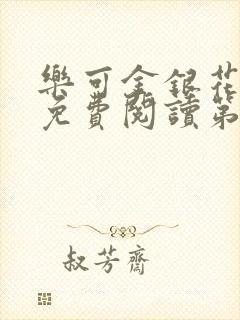 樂可金銀花
免費閱讀第
叔芳齋